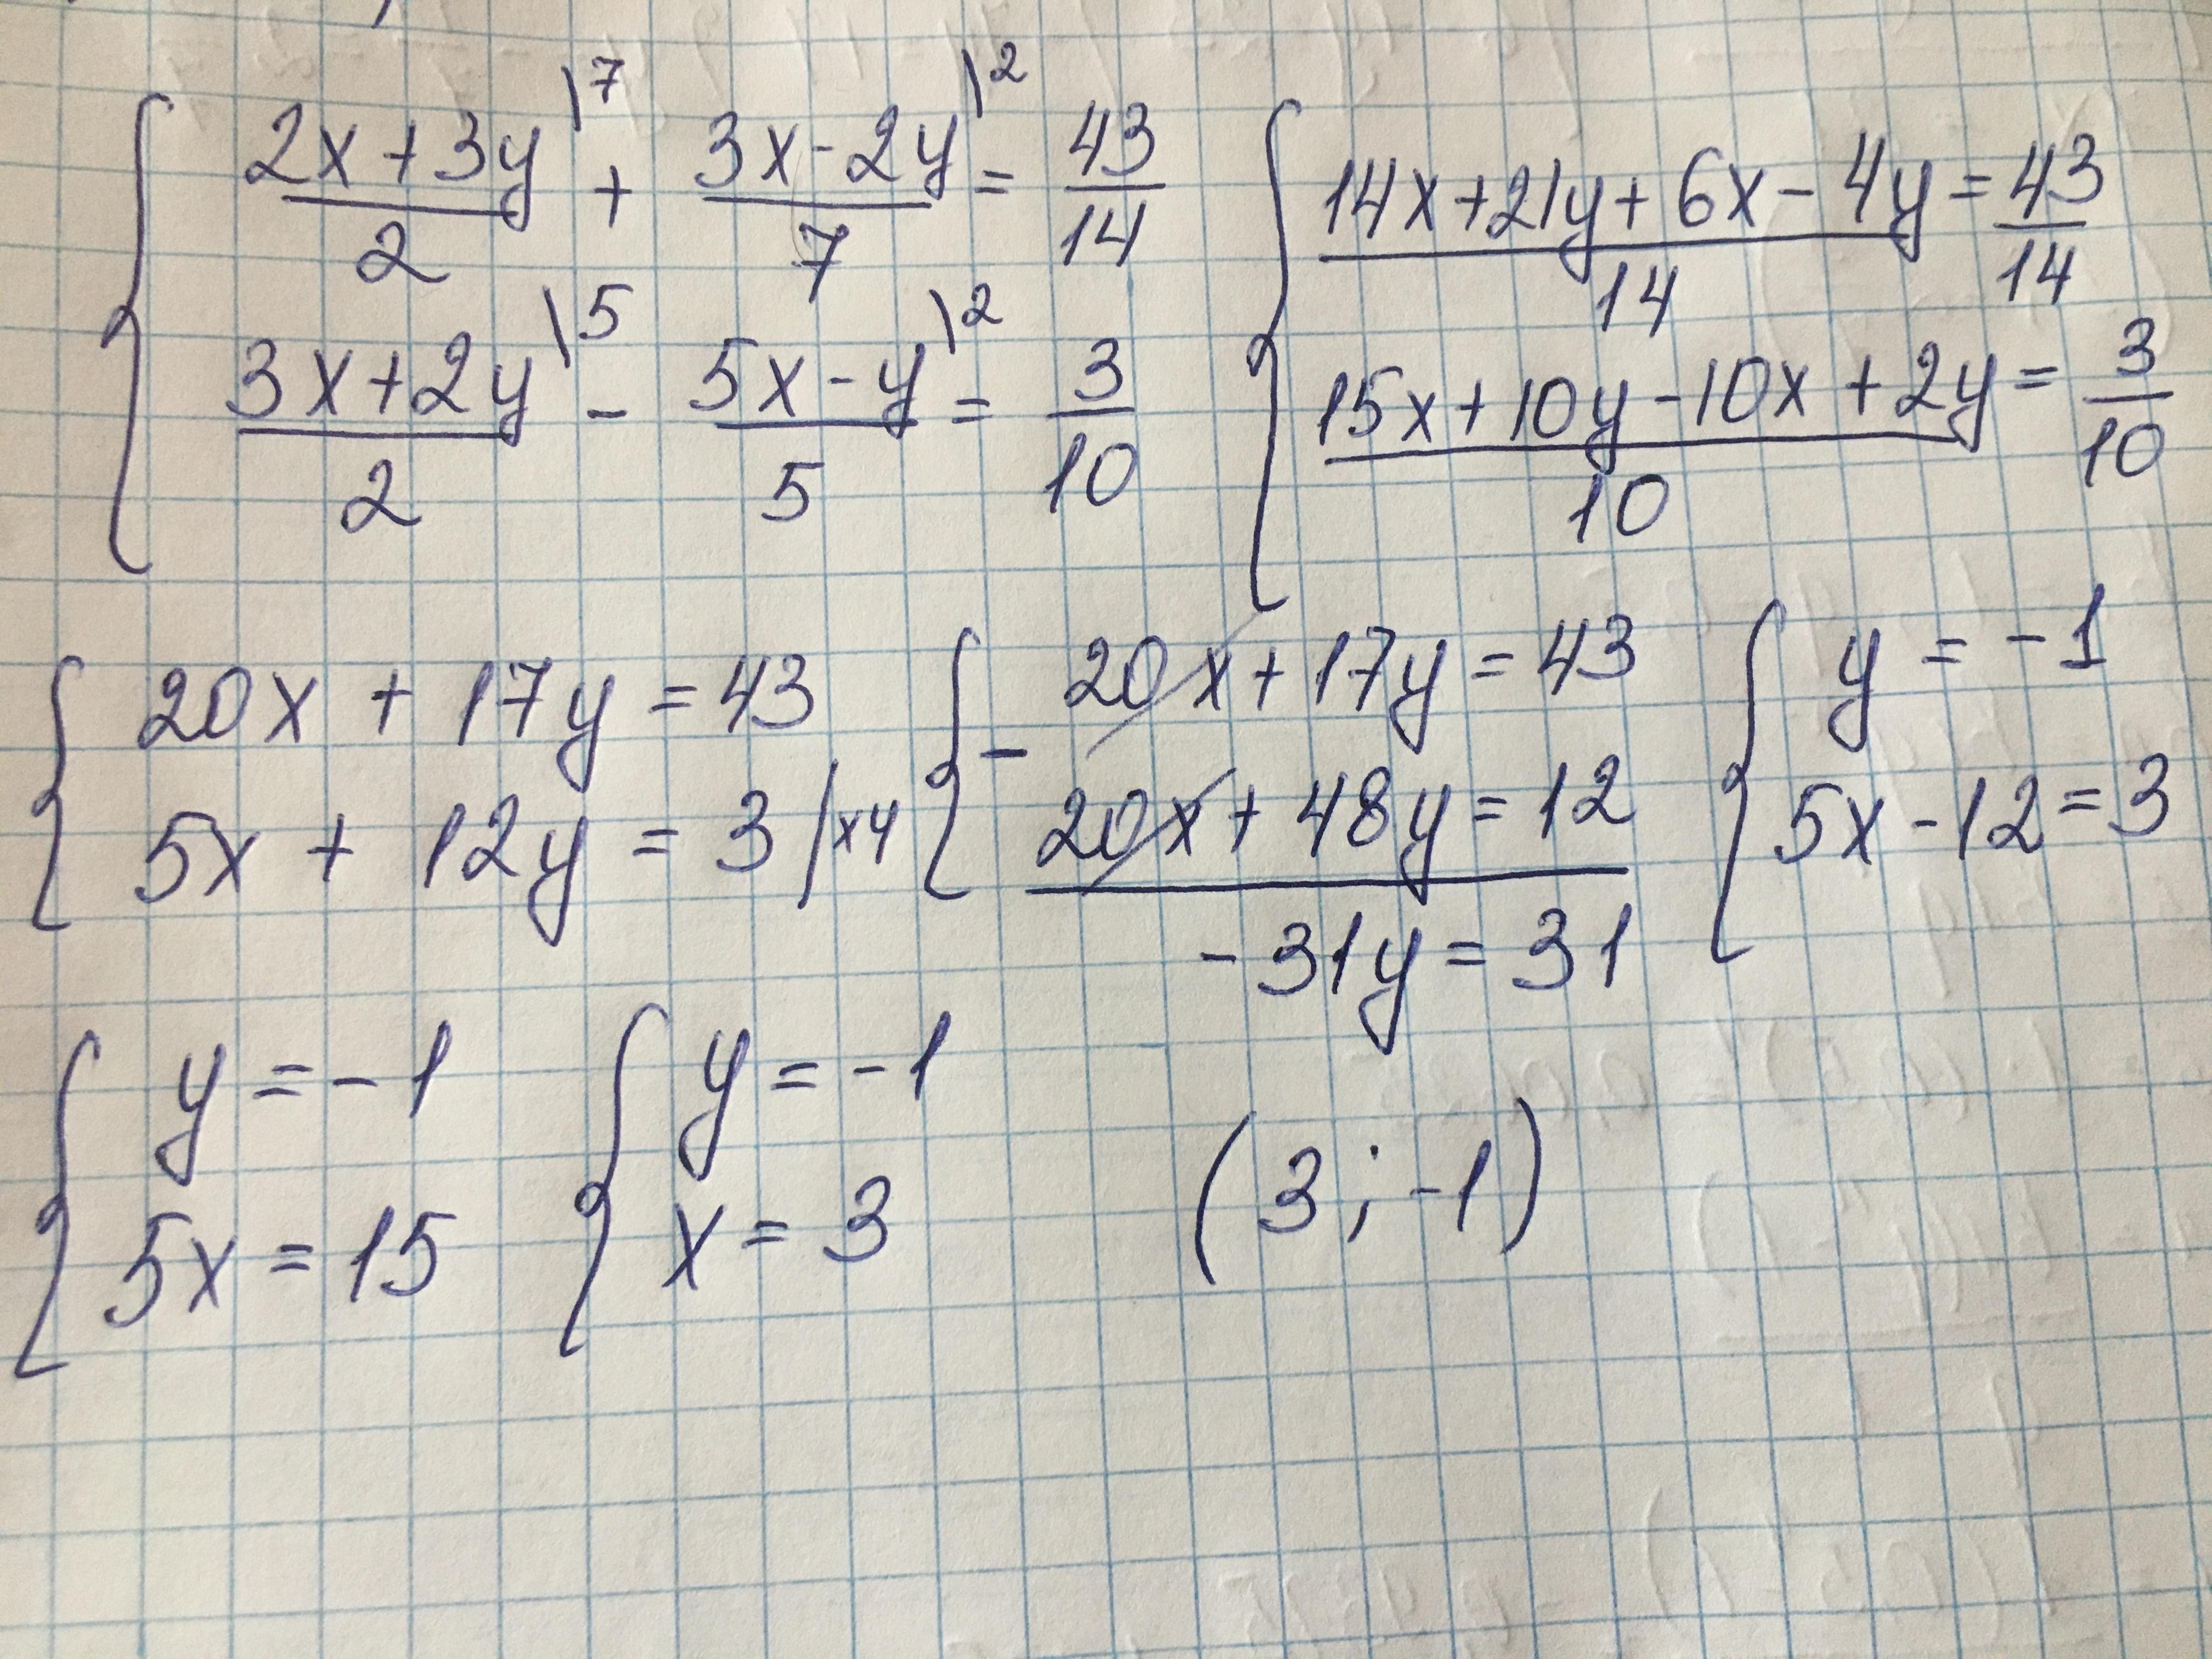 { (2x+3y)/2 \7 + (3x-2y)/7 \2 = 43/14
(3x+2y)/2 \5 - (5x-y)/5 \2 = 3/10
{ (14x+21y+6x-4y)/14 = 43/14
(15x+10y-10x+2y)/10 = 3/10
{ 20x + 17y = 43
5x + 12y = 3 | x4
{ - 20x + 17y = 43
20x + 48y = 12
-31y = 31
{ y = -1
5x - 12 = 3
{ y = -1
5x = 15
{ y = -1
x = 3
(3; -1)